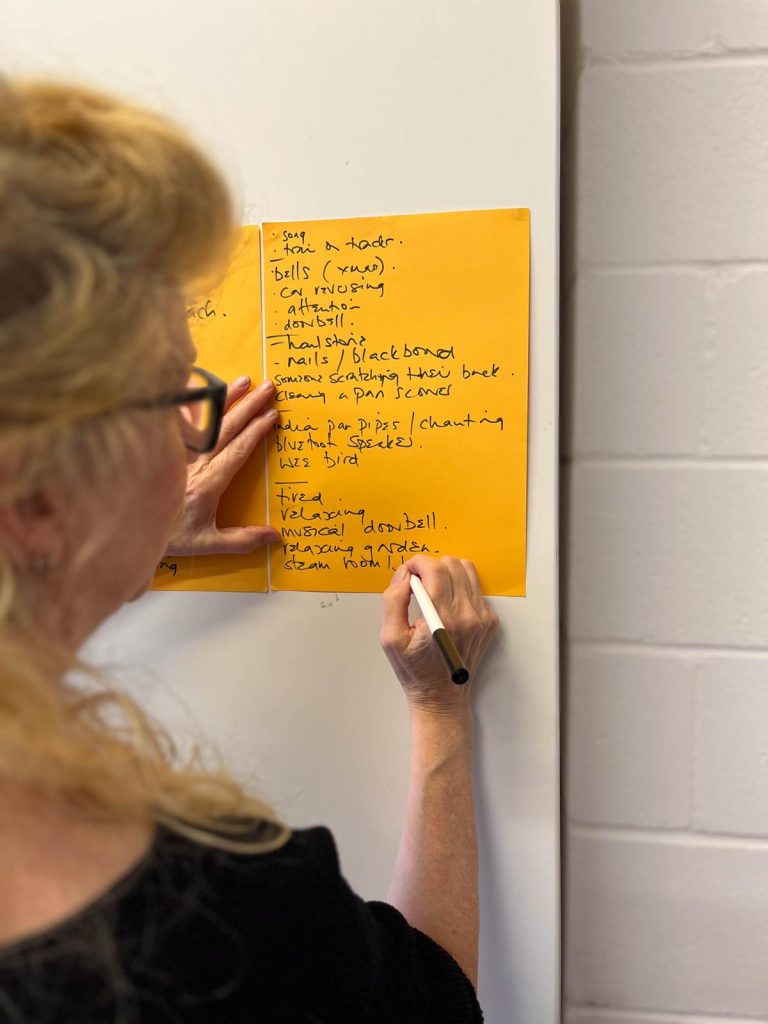 ach.
ng
· song
· train on tracks.
bells (xmas).
· car reversing
· attention
· doorbell.
- hailstone
- nails / blackboard
someone scratching their back.
cleaning a pan scourer
india pan pipes / chanting
bluetoot speaker.
wee bird
tired.
relaxing
musical doorbell.
relaxing garden.
steam room